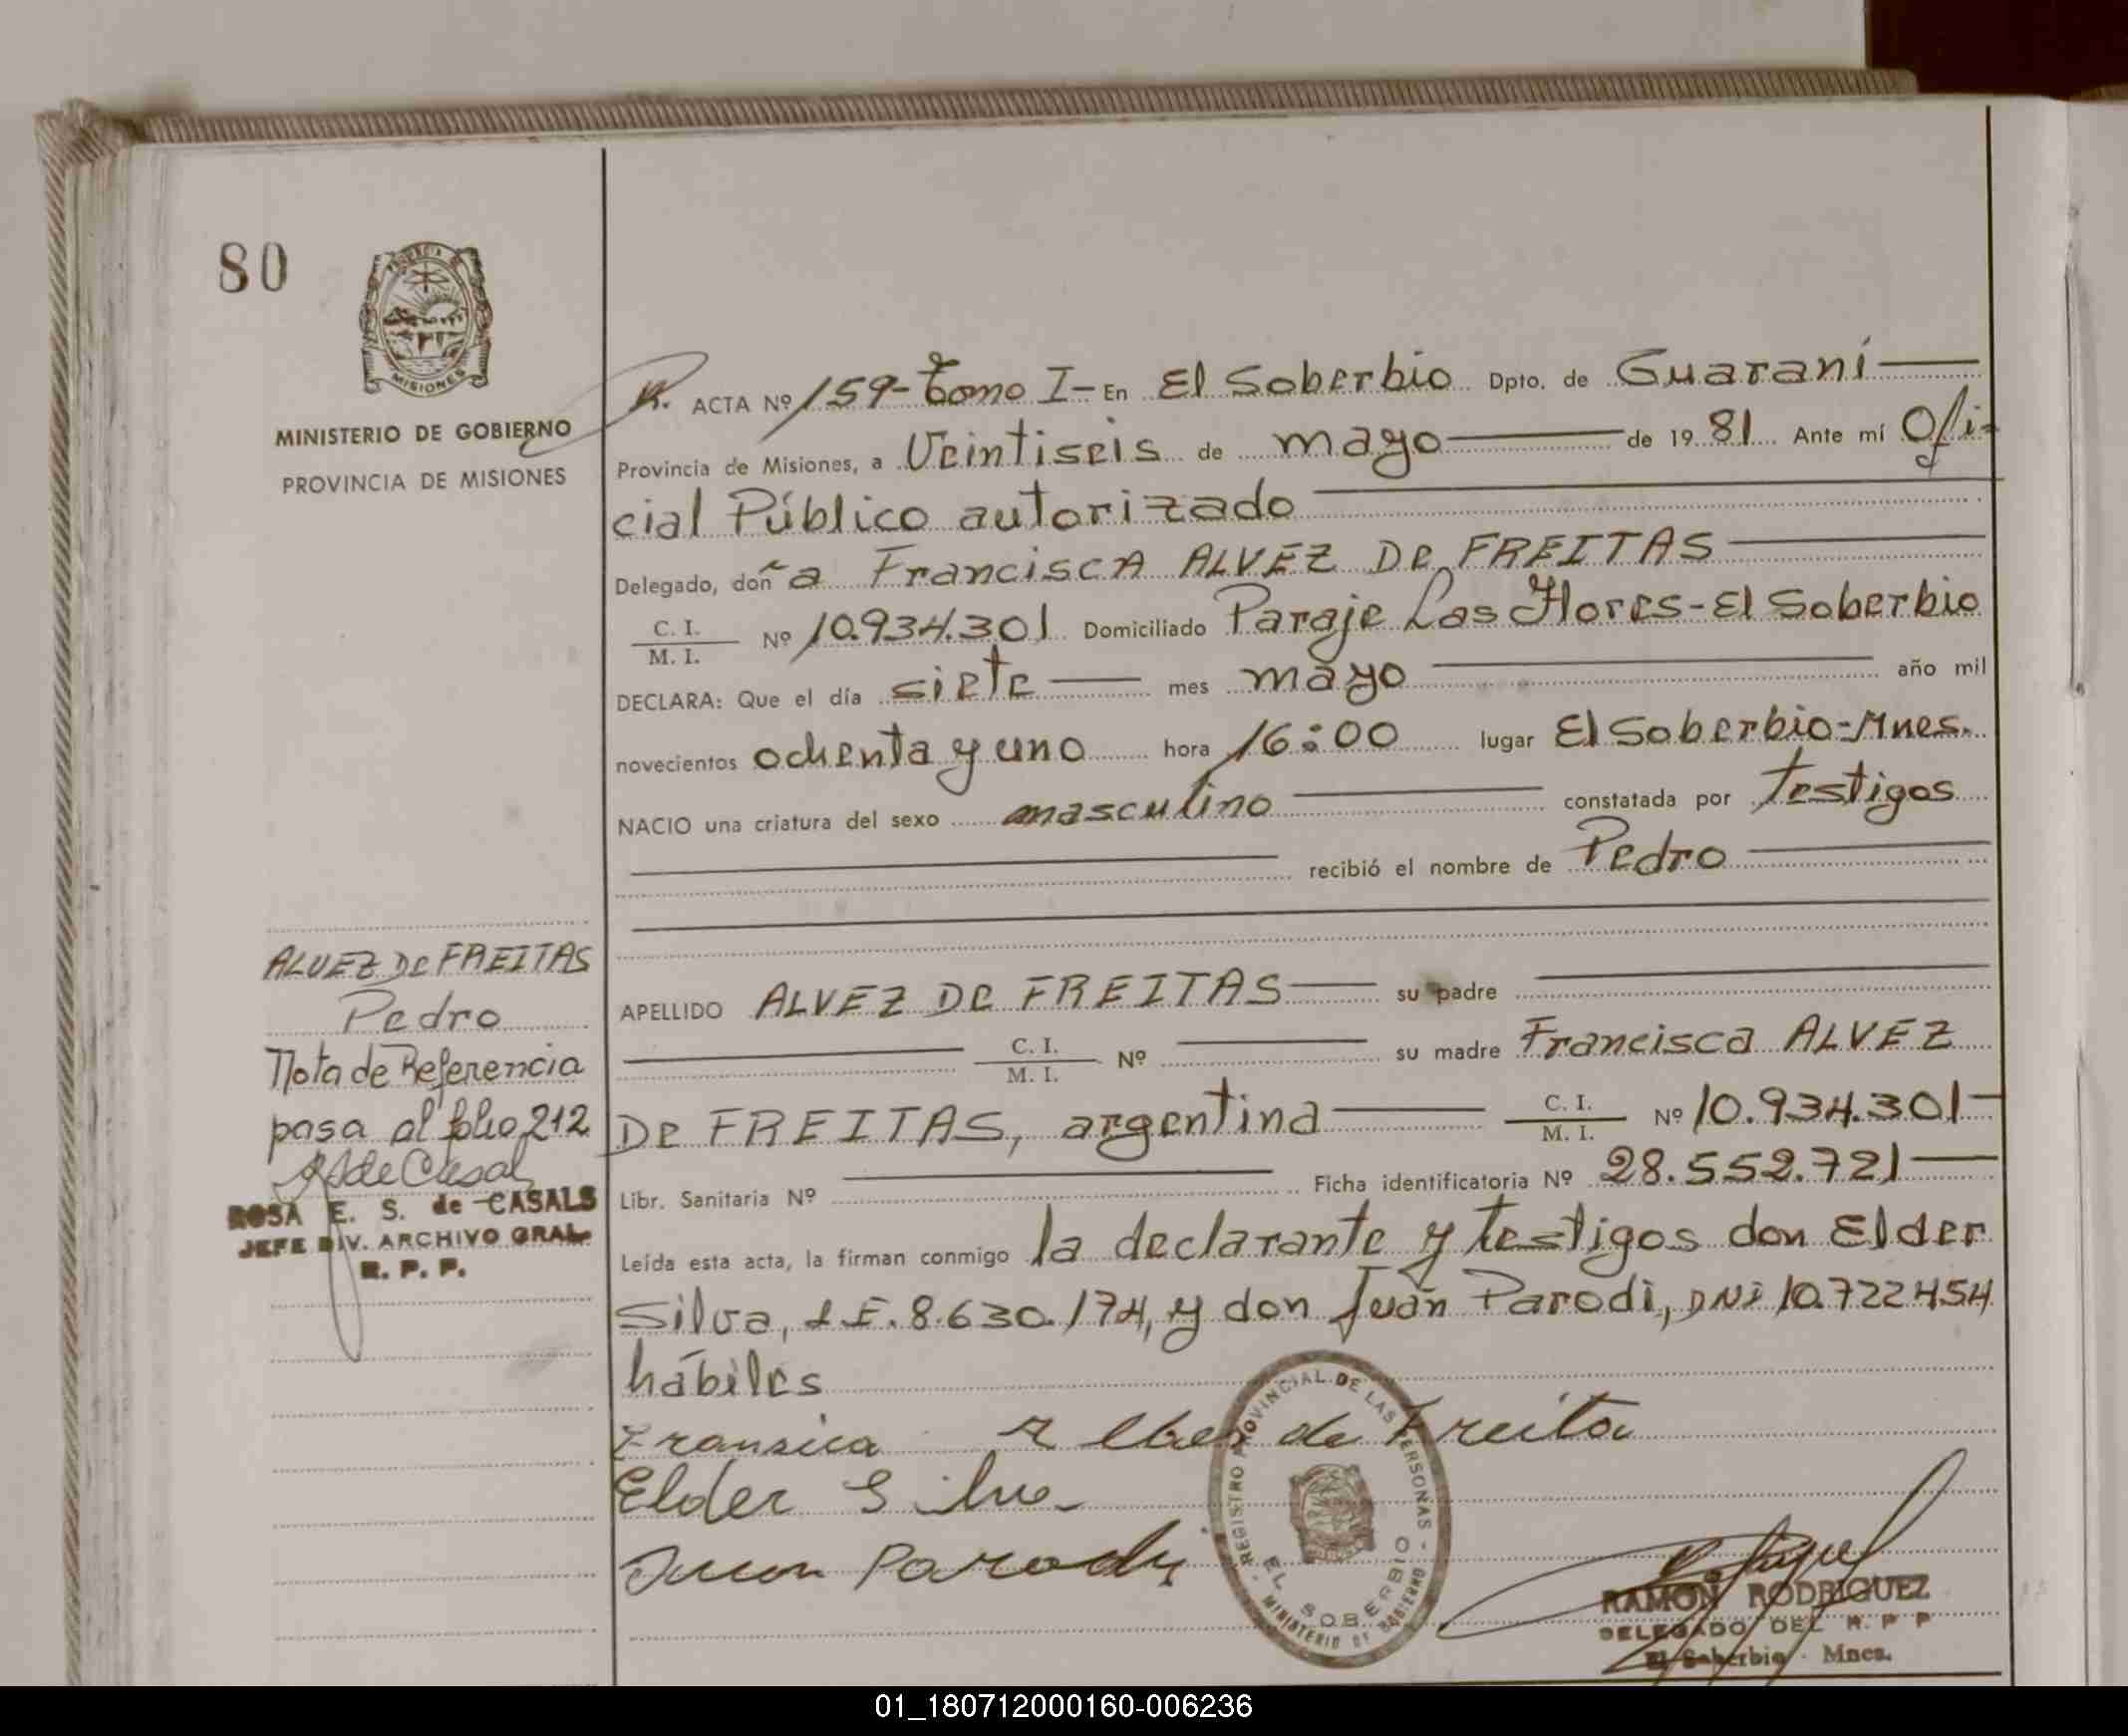 80
MISIONES
MINISTERIO DE GOBIERNO
PROVINCIA DE MISIONES
ALVEZ De FREITAS
Pedro
Nota de Referencia
pasa al folio 212
ROSA E. S. de CASALS
JEFE DIV. ARCHIVO GRAL.
R. P. P.
ACTA Nº 159- Tomo I- En El Soberbio Dpto. de Guaraní
Provincia de Misiones, a Veintiseis de mayo de 19 81 Ante mí Ofi-
cial Público autorizado
Delegado, doña Francisca ALVEZ De FREITAS
C. I.
M. I. Nº 10.934.301 Domiciliado Paraje Las Flores-El Soberbio
DECLARA: Que el día siete mes mayo año mil
novecientos ochenta y uno hora 16:00 lugar El Soberbio-Mnes.
NACIO una criatura del sexo masculino constatada por testigos
recibió el nombre de Pedro
APELLIDO ALVEZ De FREITAS su padre
C. I.
M. I. Nº su madre Francisca ALVEZ
De FREITAS, argentina C. I.
M. I. Nº 10.934.301-
Libr. Sanitaria Nº Ficha identificatoria Nº 28.552.721
Leída esta acta, la firman conmigo la declarante y testigos don Elder
Silva, L.E. 8.630.174, y don Juan Parodi, DNI 10.722454
hábiles
Fransica Albes de Freita
Elder Silva
Juan Parody
REGISTRO PROVINCIAL DE LAS PERSONAS -
EL SOBERBIO
MINISTERIO DE GOBIERNO
RAMON RODRIGUEZ
DELEGADO DEL R. P. P
El Soberbio - Mnes.
01_180712000160-006236